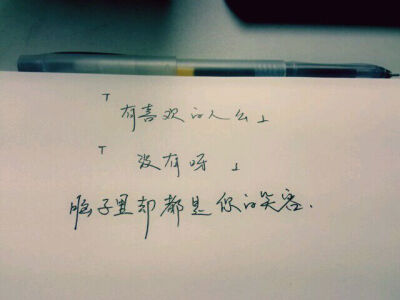 「有喜欢的人么」
「没有呀」
脑子里却都是你的笑容.